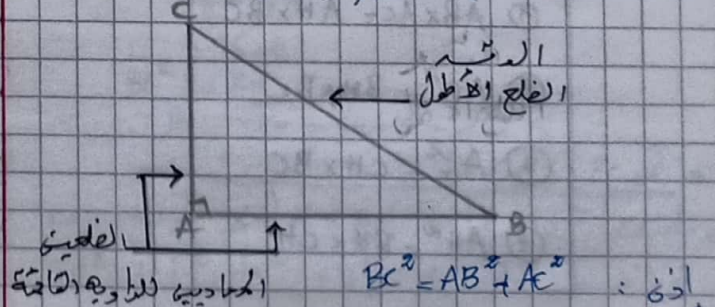 C
الوتر
الضلع الأطول
A
B
الضلعين
المحاذيين للزاوية القائمة
إذن : BC² = AB² + AC²